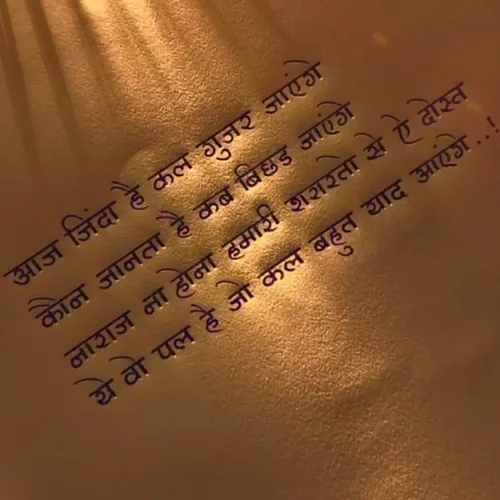 आज जिंदा है कल गुजर जाएंगे
कौन जानता है कब बिछड जाएंगे
नाराज ना होना हमारी शरारतो से ऐ दोस्त
ये वो पल है जो कल बहुत याद आएंगे ..!